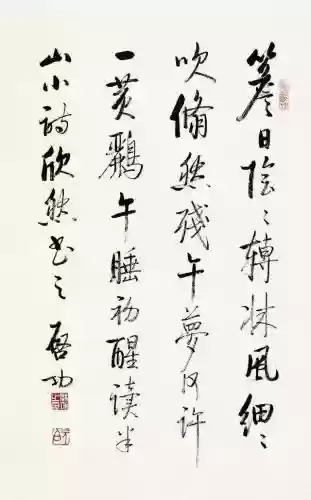 簷日陰〻轉牀風細〻
吹翛然殘午夢何許
一黄鸝午睡初醒讀半
山小詩欣然書之 啓功